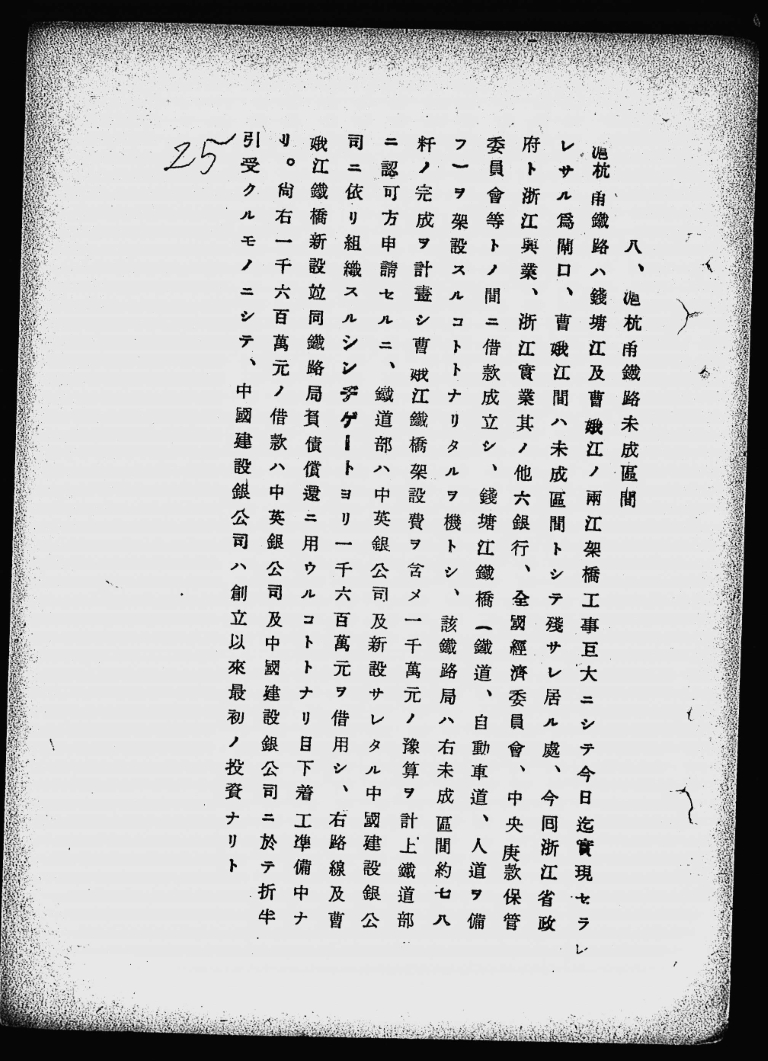 八、滬杭甬鐵路未成區間
滬杭甬鐵路ハ錢塘江及曹娥江ノ兩江架橋工事巨大ニシテ今日迄實現セラレ
レサル爲閘口、曹娥江間ハ未成區間トシテ殘サレ居ル處、今囘浙江省政
府ト浙江興業、浙江實業其ノ他六銀行、全國經濟委員會、中央庚款保管
委員會等トノ間ニ借款成立シ、錢塘江鐵橋(鐵道、自動車道、人道ヲ備
フ)ヲ架設スルコトトナリタルヲ機トシ、該鐵路局ハ右未成區間約七八
粁ノ完成ヲ計畫シ曹娥江鐵橋架設費ヲ含メ一千萬元ノ豫算ヲ計上鐵道部
ニ認可方申請セルニ、鐵道部ハ中英銀公司及新設サレタル中國建設銀公
司ニ依リ組織スルシンヂゲートヨリ一千六百萬元ヲ借用シ、右路線及曹
娥江鐵橋新設竝同鐵路局負債償還ニ用ウルコトトナリ目下着工準備中ナ
リ。尙右一千六百萬元ノ借款ハ中英銀公司及中國建設銀公司ニ於テ折半
引受クルモノニシテ、中國建設銀公司ハ創立以來最初ノ投資ナリト
25